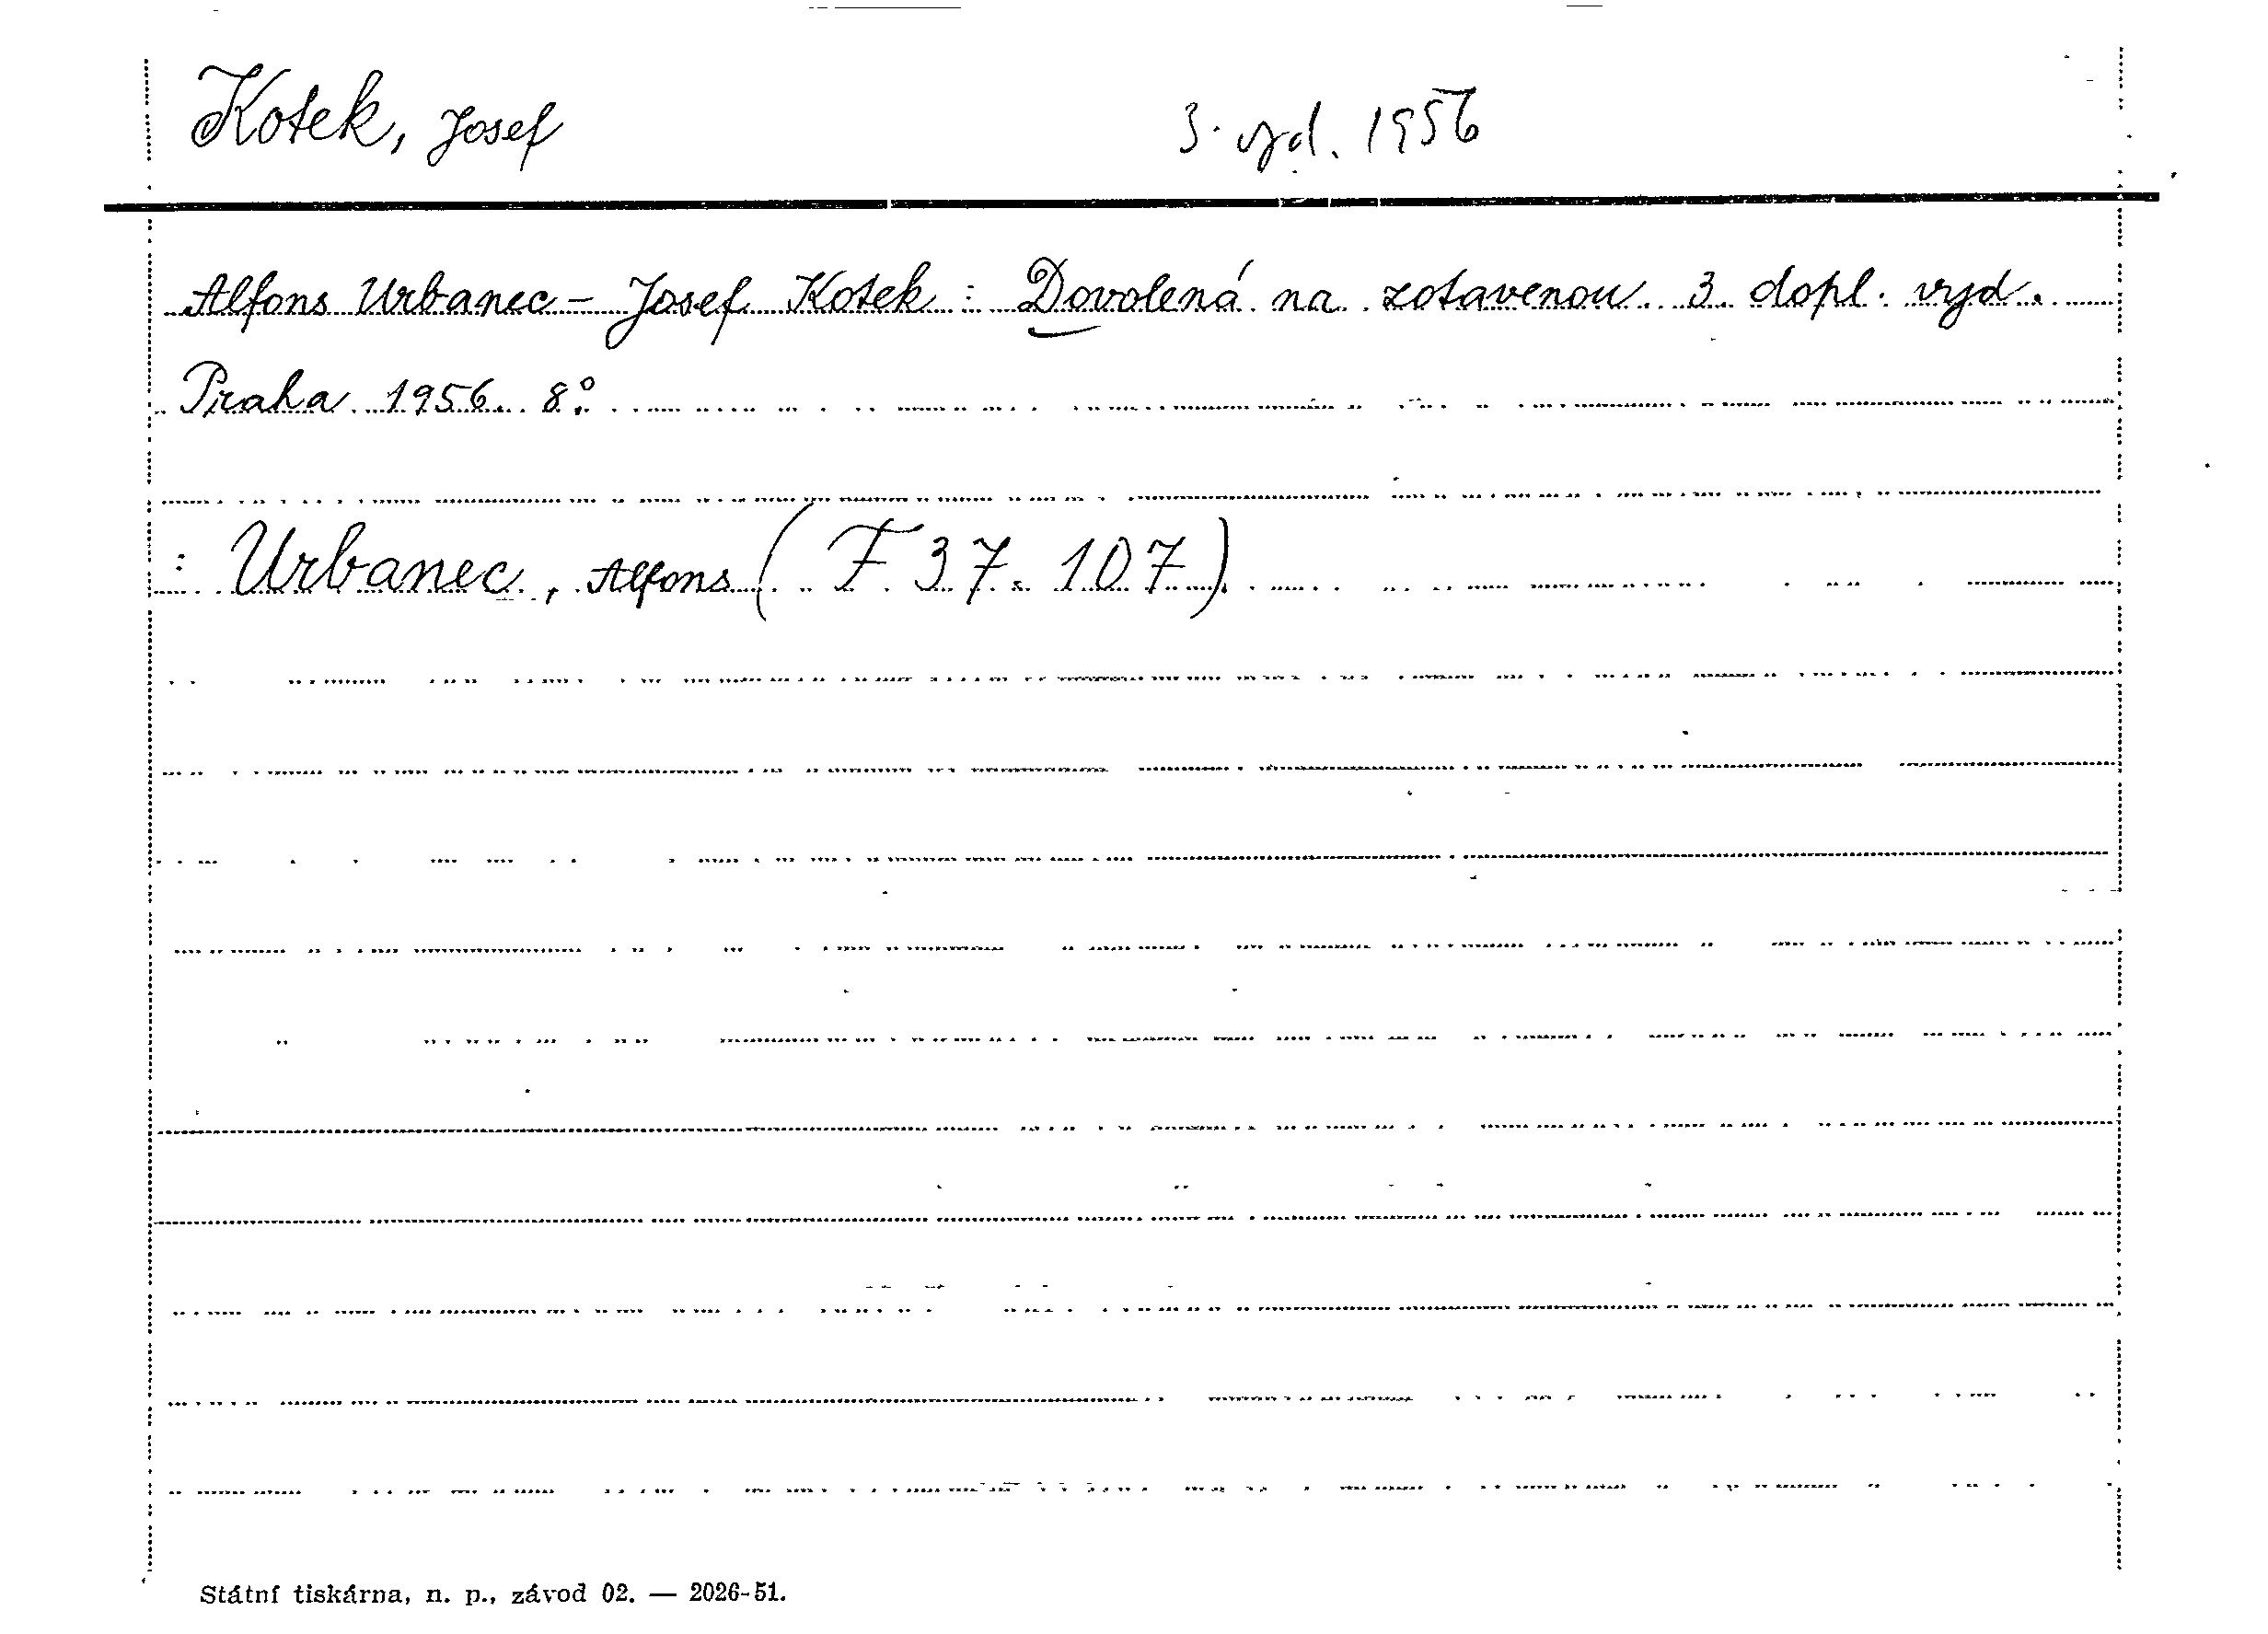 Kotek, Josef 3. vyd. 1956
Alfons Urbanec - Josef Kotek : Dovolená na zotavenou. 3. dopl. vyd.
Praha 1956. 8°.
: Urbanec, Alfons ( F 37.107)
Státní tiskárna, n. p., závod 02. — 2026-51.